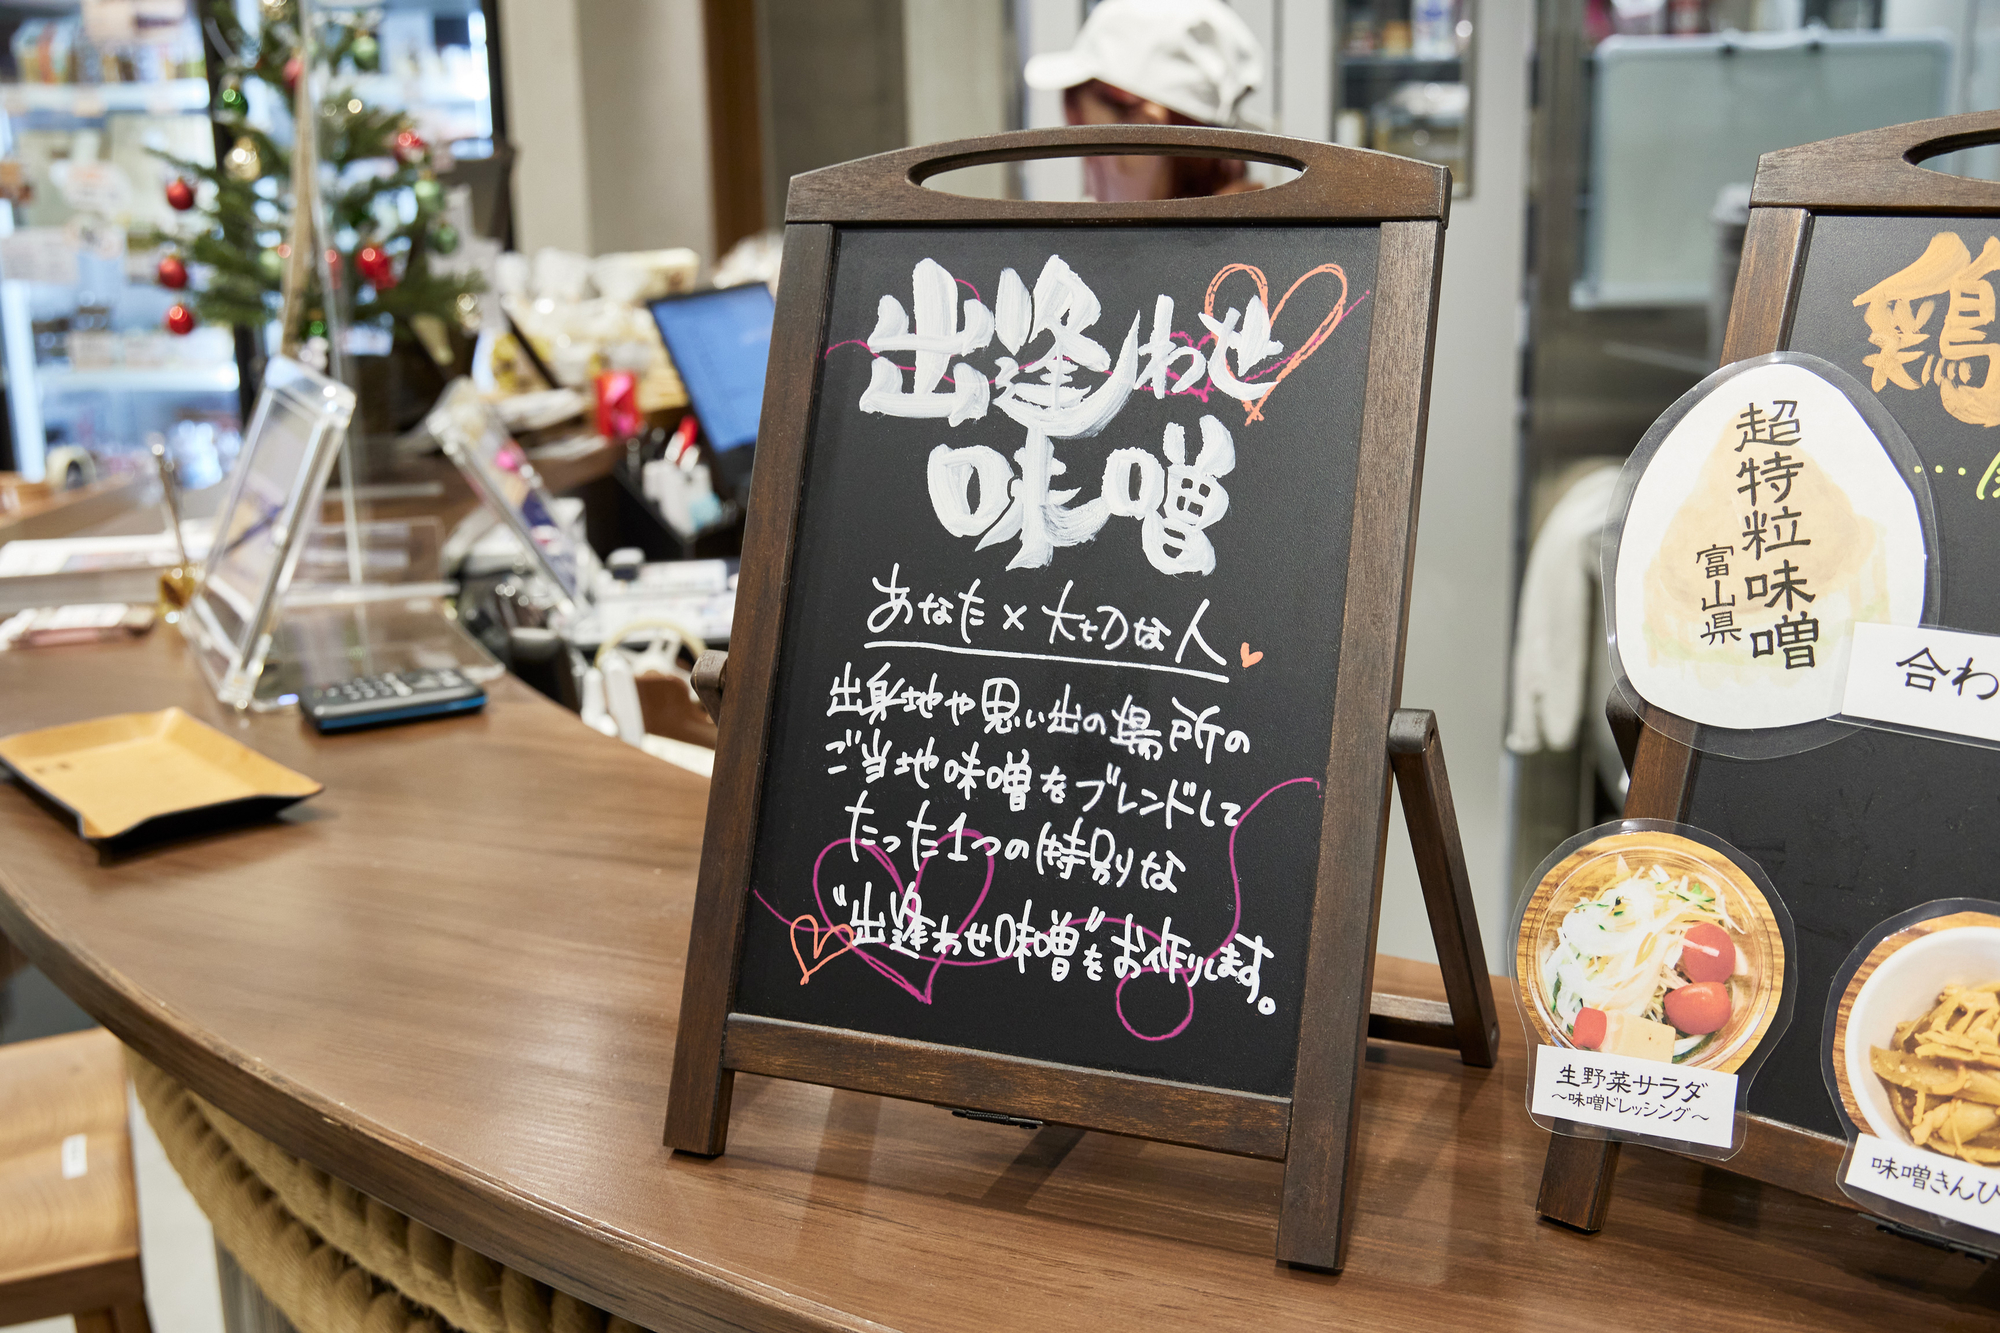 出逢わせ
味噌
あなた × 大切な人
出身地や思い出の場所の
ご当地味噌をブレンドして
たった1つの特別な
"出逢わせ味噌"をお作りします。
鶏
超特粒味噌
富山県
合わ
生野菜サラダ
～味噌ドレッシング～
味噌きんぴ